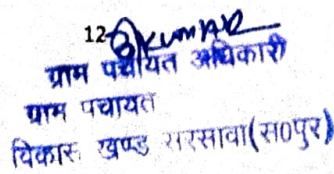 12
Kumar
ग्राम पंचायत अधिकारी
ग्राम पंचायत
विकास खण्ड सरसावा(स०पुर)